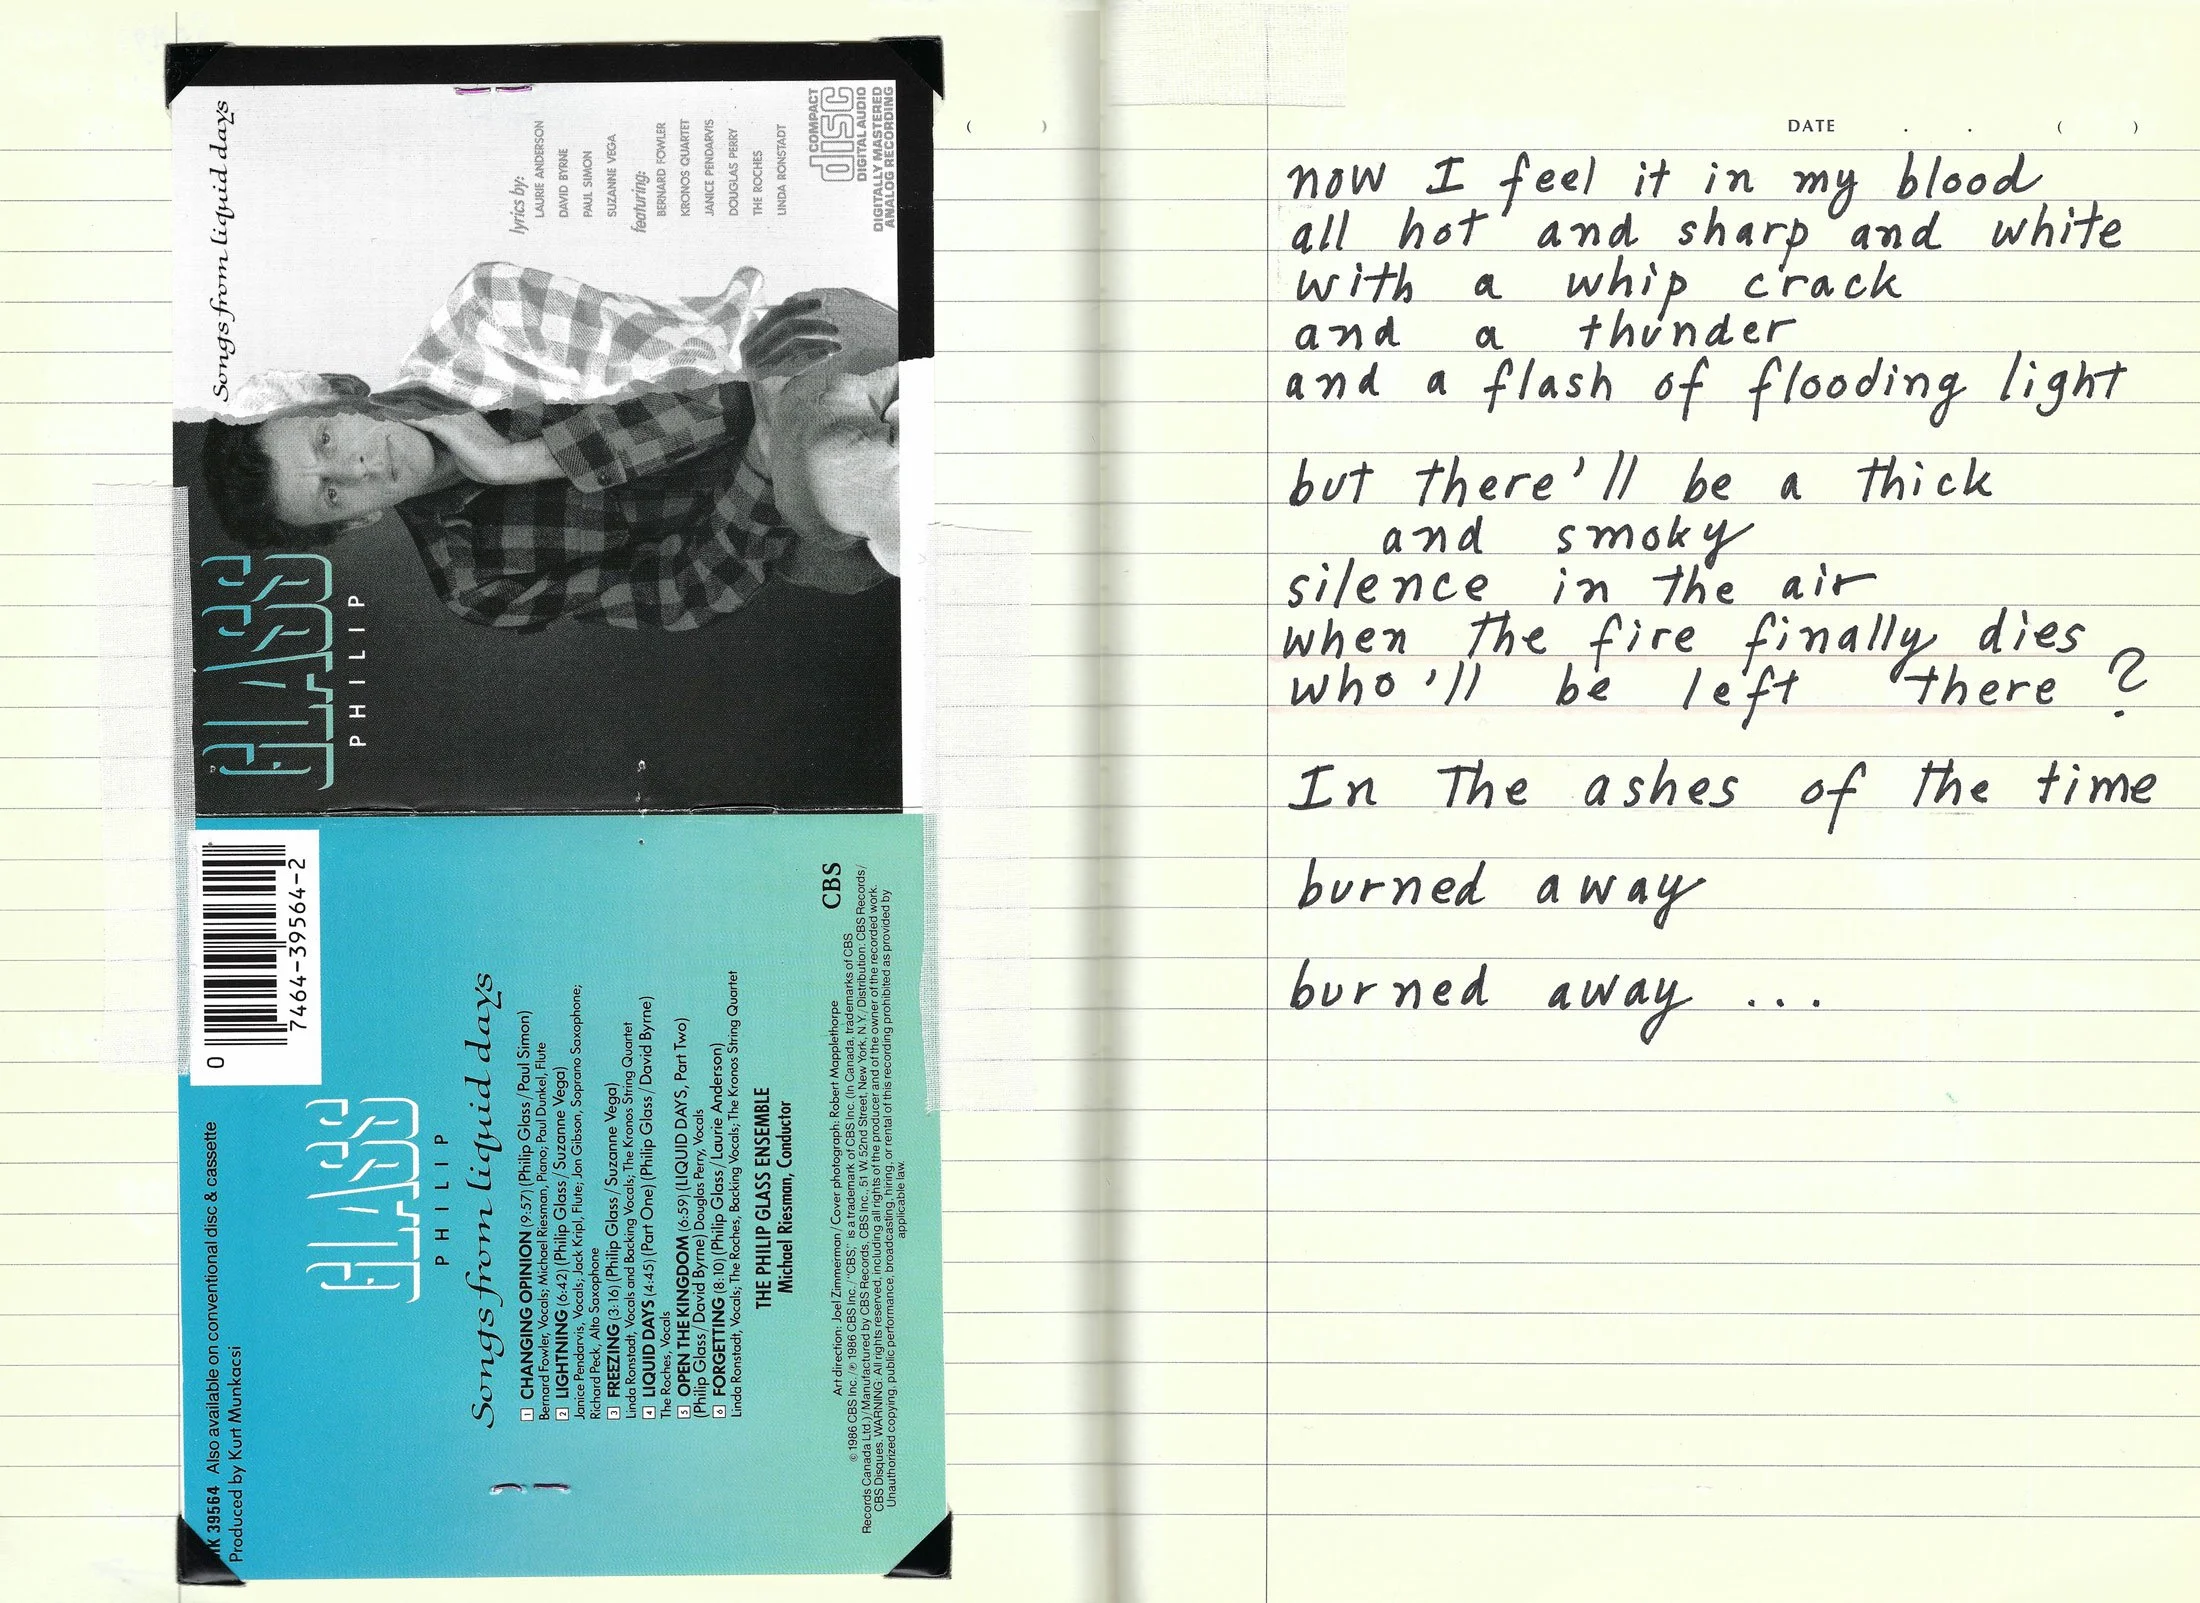 Songs from liquid days
GLASS
PHILIP
lyrics by:
LAURIE ANDERSON
DAVID BYRNE
PAUL SIMON
SUZANNE VEGA
featuring:
BERNARD FOWLER
KRONOS QUARTET
JANICE PENDARVIS
DOUGLAS PERRY
THE ROCHES
LINDA RONSTADT
COMPACT
disc
DIGITAL AUDIO
DIGITALLY MASTERED
ANALOG RECORDING
K 39564 Also available on conventional disc & cassette
Produced by Kurt Munkacsi
0 7464-39564-2
GLASS
PHILIP
Songs from liquid days
1 CHANGING OPINION (9:57) (Philip Glass/Paul Simon)
Bernard Fowler, Vocals; Michael Riesman, Piano; Paul Dunkel, Flute
2 LIGHTNING (6:42) (Philip Glass/Suzanne Vega)
Janice Pendarvis, Vocals; Jack Kripl, Flute; Jon Gibson, Soprano Saxophone;
Richard Peck, Alto Saxophone
3 FREEZING (3:16) (Philip Glass/Suzanne Vega)
Linda Ronstadt, Vocals and Backing Vocals; The Kronos String Quartet
4 LIQUID DAYS (4:45) (Part One) (Philip Glass/David Byrne)
The Roches, Vocals
5 OPEN THE KINGDOM (6:59) (LIQUID DAYS, Part Two)
(Philip Glass/David Byrne) Douglas Perry, Vocals
6 FORGETTING (8:10) (Philip Glass/Laurie Anderson)
Linda Ronstadt, Vocals; The Roches, Backing Vocals; The Kronos String Quartet
THE PHILIP GLASS ENSEMBLE
Michael Riesman, Conductor
CBS
Art direction: Joel Zimmerman/Cover photograph: Robert Mapplethorpe
© 1986 CBS Inc./℗ 1986 CBS Inc./"CBS" is a trademark of CBS Inc. (In Canada, trademarks of CBS
Records Canada Ltd.)/Manufactured by CBS Records, CBS Inc., 51 W. 52nd Street, New York, N.Y./Distribution: CBS Records/
CBS Disques. WARNING: All rights reserved, including all rights of the producer and of the owner of the recorded work.
Unauthorized copying, public performance, broadcasting, hiring, or rental of this recording prohibited as provided by
applicable law.
( )
DATE . . ( )
now I feel it in my blood
all hot and sharp and white
with a whip crack
and a thunder
and a flash of flooding light
but there'll be a thick
and smoky
silence in the air
when the fire finally dies
who'll be left there?
In the ashes of the time
burned away
burned away ...